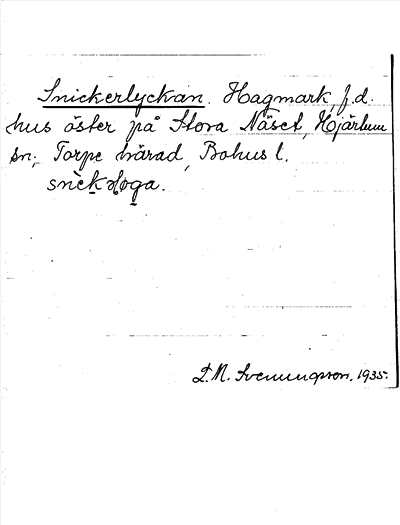 Snickerlyckan. Hagmark, f.d.
hus öster på Stora Näset, Hjärtum
sn; Torpe härad, Bohus l.
T.M. Svenungsson. 1935.